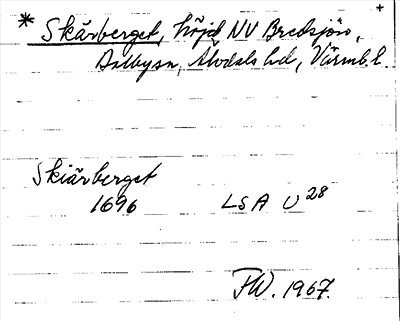 * Skärberget, höjd NV Bredsjön, +
Dalbysn, Älvdals hd, Värml. l.
Skiärberget
1696 LSA U 28
FW. 1967.